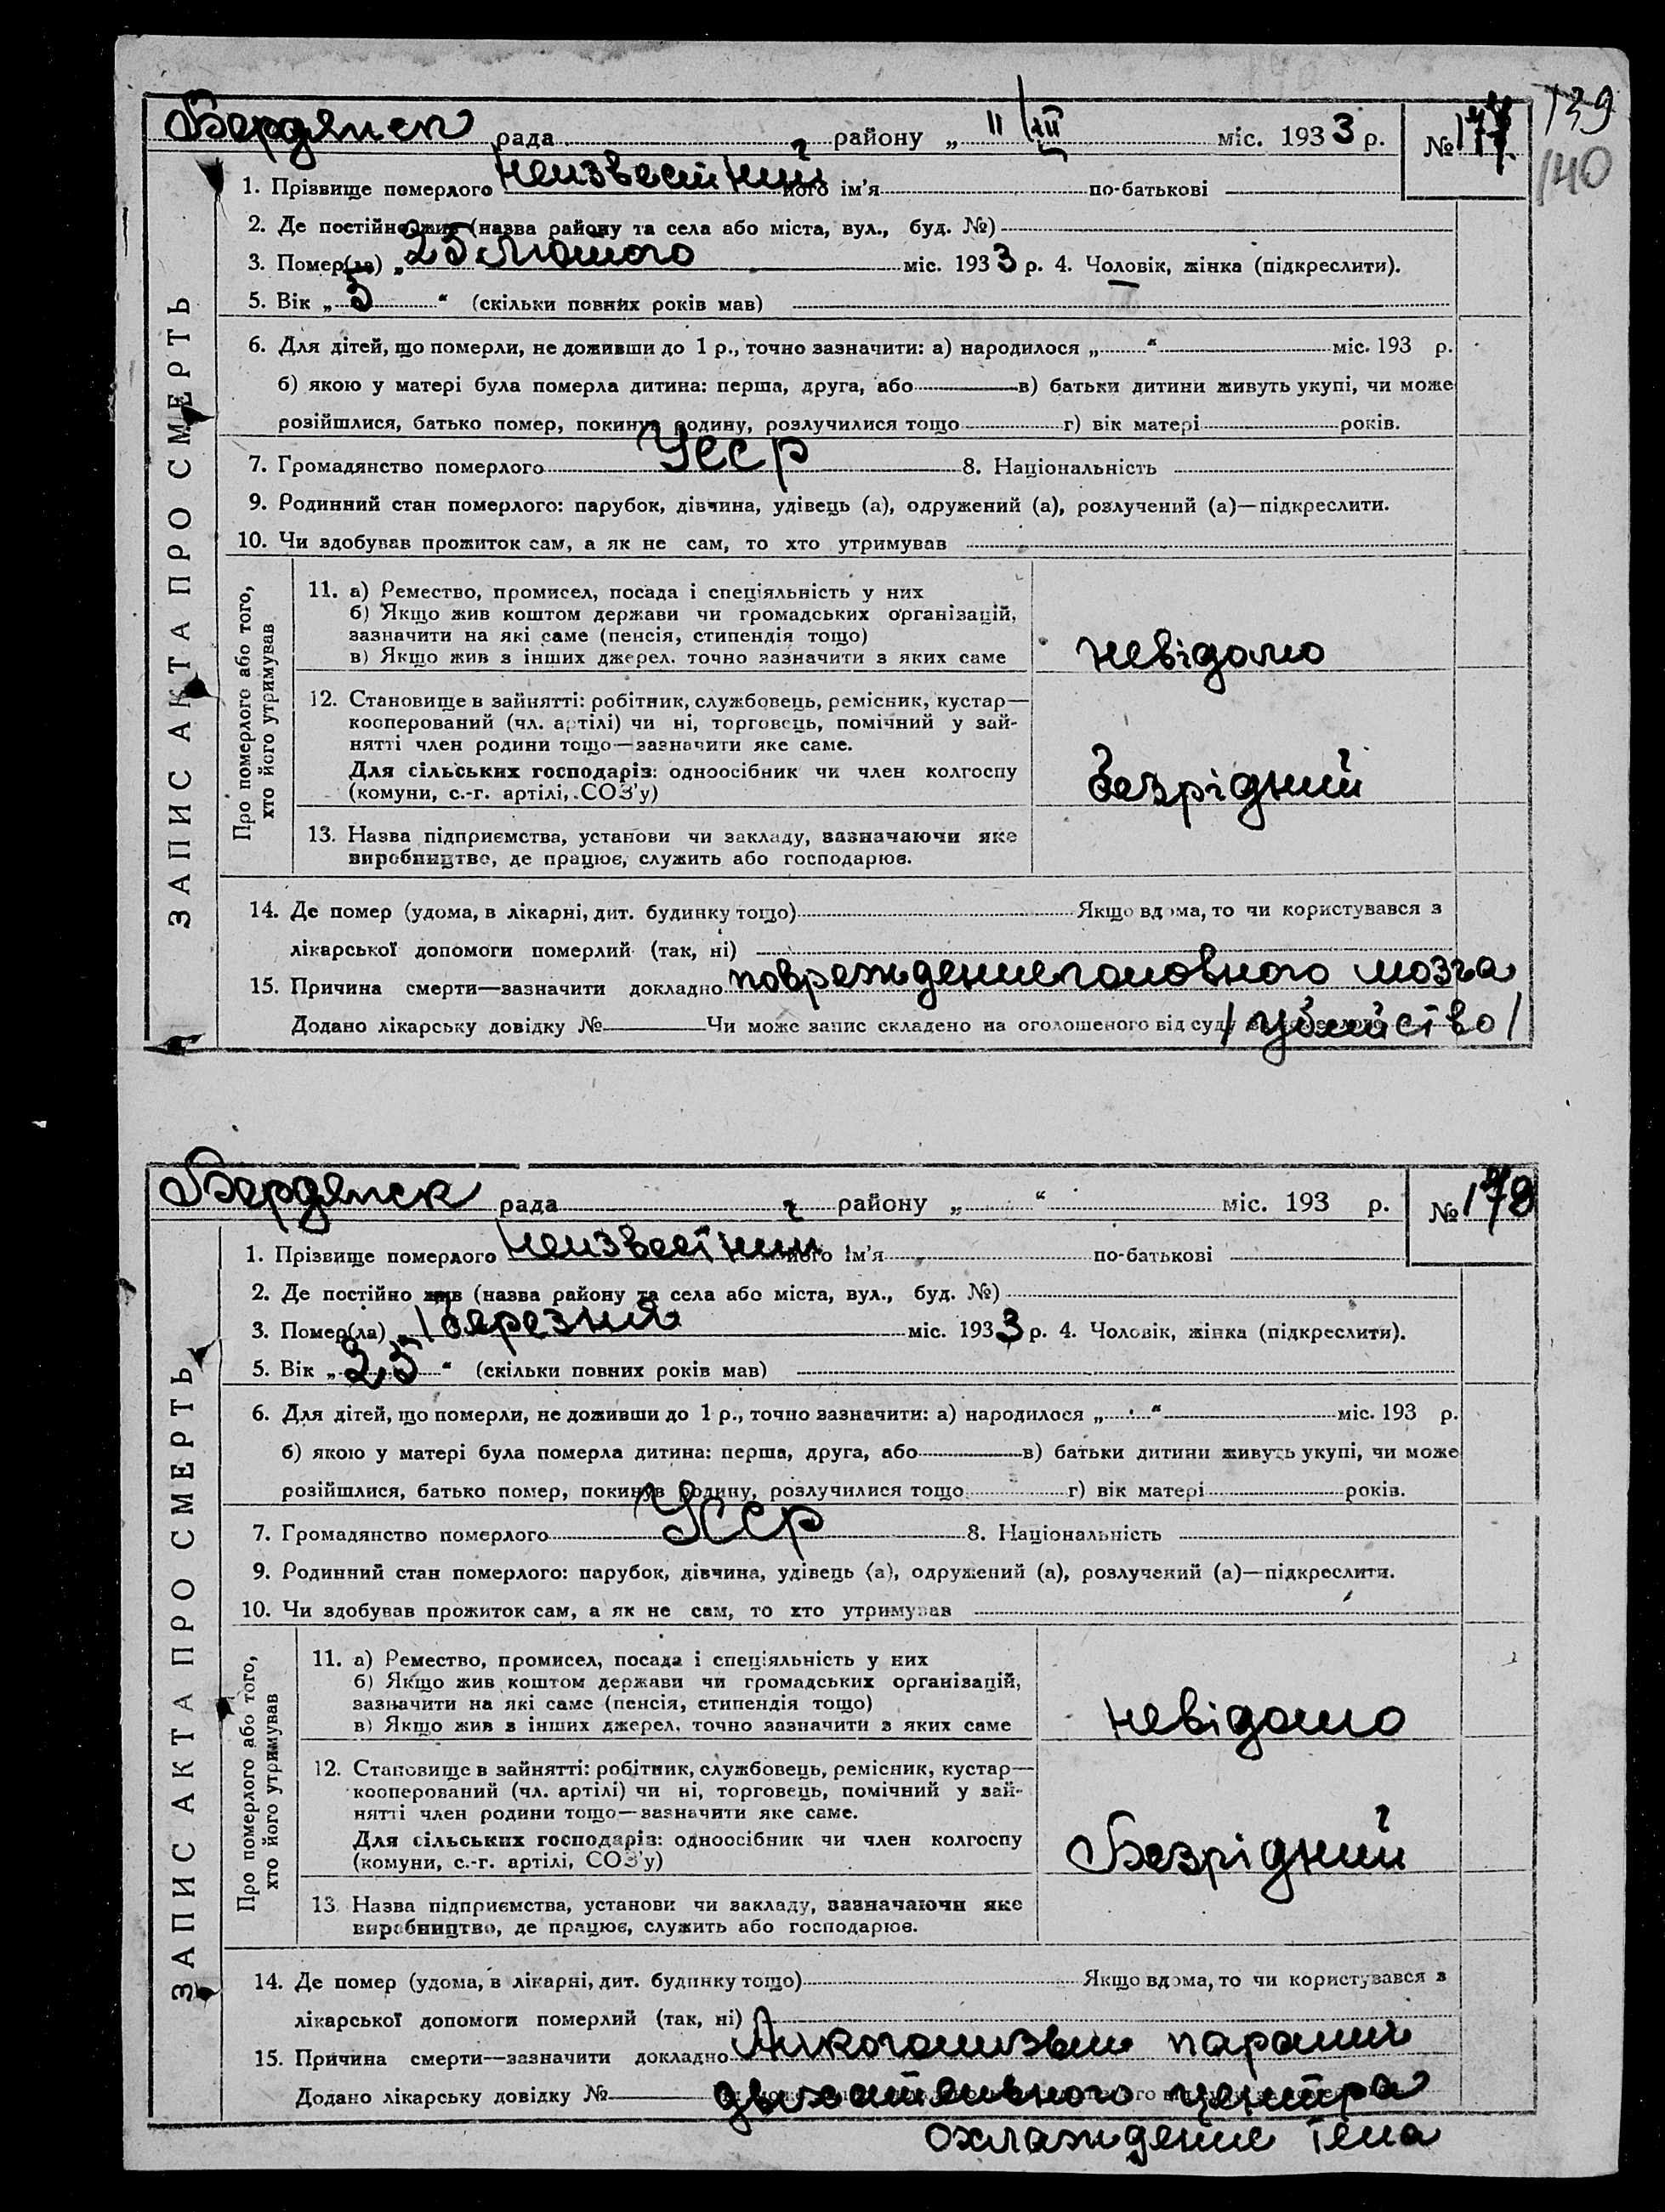 139
140
Бердянск рада г району „ 11/III міс. 1933 р. № 177
1. Прізвище померлого неизвестный його ім’я по-батькові
2. Де постійно жив (назва району та села або міста, вул., буд. №)
3. Помер(ла) „ 25 лютого міс. 1933 р. 4. Чоловік, жінка (підкреслити).
5. Вік „ 5 “ (скільки повних років мав)
6. Для дітей, що померли, не доживши до 1 р., точно зазначити: а) народилося „ “ міс. 193 р.
б) якою у матері була померла дитина: перша, друга, або в) батьки дитини живуть укупі, чи може
розійшлися, батько помер, покинув родину, розлучилися тощо г) вік матері років.
7. Громадянство померлого Усср 8. Національність
9. Родинний стан померлого: парубок, дівчина, удівець (а), одружений (а), розлучений (а)—підкреслити.
10. Чи здобував прожиток сам, а як не сам, то хто утримував
ЗАПИС АКТА ПРО СМЕРТЬ
Про померлого або того,
хто його утримував
11. а) Ремество, промисел, посада і спеціяльність у них
б) Якщо жив коштом держави чи громадських організацій,
зазначити на які саме (пенсія, стипендія тощо)
в) Якщо жив з інших джерел, точно зазначити з яких саме
невідомо
12. Становище в зайнятті: робітник, службовець, ремісник, кустар—
кооперований (чл. артілі) чи ні, торговець, помічний у зай-
нятті член родини тощо—зазначити яке саме.
Для сільських господарів: одноосібник чи член колгоспу
(комуни, с.-г. артілі, СОЗ’у)
безрідний
13. Назва підприємства, установи чи закладу, зазначаючи яке
виробництво, де працює, служить або господарює.
14. Де помер (удома, в лікарні, дит. будинку тощо) Якщо вдома, то чи користувався з
лікарської допомоги померлий (так, ні)
15. Причина смерти—зазначити докладно повреждение головного мозга
Додано лікарську довідку № Чи може запис складено на оголошеного від суду /убийство/
Бердянск рада г району „ “ міс. 193 р. № 178
1. Прізвище померлого неизвестный його ім’я по-батькові
2. Де постійно жив (назва району та села або міста, вул., буд. №)
3. Помер(ла) „ 1 березня міс. 1933 р. 4. Чоловік, жінка (підкреслити).
5. Вік „ 25 “ (скільки повних років мав)
6. Для дітей, що померли, не доживши до 1 р., точно зазначити: а) народилося „ “ міс. 193 р.
б) якою у матері була померла дитина: перша, друга, або в) батьки дитини живуть укупі, чи може
розійшлися, батько помер, покинув родину, розлучилися тощо г) вік матері років.
7. Громадянство померлого Усср 8. Національність
9. Родинний стан померлого: парубок, дівчина, удівець (а), одружений (а), розлучений (а)—підкреслити.
10. Чи здобував прожиток сам, а як не сам, то хто утримував
ЗАПИС АКТА ПРО СМЕРТЬ
Про померлого або того,
хто його утримував
11. а) Ремество, промисел, посада і спеціяльність у них
б) Якщо жив коштом держави чи громадських організацій,
зазначити на які саме (пенсія, стипендія тощо)
в) Якщо жив з інших джерел, точно зазначити з яких саме
невідомо
12. Становище в зайнятті: робітник, службовець, ремісник, кустар—
кооперований (чл. артілі) чи ні, торговець, помічний у зай-
нятті член родини тощо—зазначити яке саме.
Для сільських господарів: одноосібник чи член колгоспу
(комуни, с.-г. артілі, СОЗ’у)
Безрідний
13. Назва підприємства, установи чи закладу, зазначаючи яке
виробництво, де працює, служить або господарює.
14. Де помер (удома, в лікарні, дит. будинку тощо) Якщо вдома, то чи користувався з
лікарської допомоги померлий (так, ні)
15. Причина смерти—зазначити докладно Алкоголизъм паралич
Додано лікарську довідку № дыхательного центра
охлаждение тела